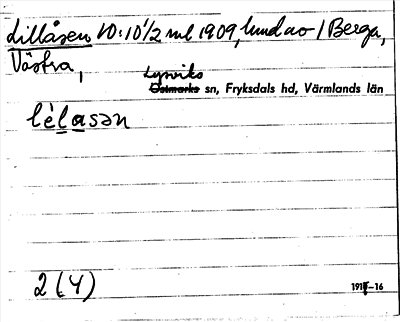 Lillåsen VO:10 1/2 ml 1909, lund av / Berga,
Västra,
Lysviks
Östmarks sn, Fryksdals hd, Värmlands län
lèlasən
2 (4)
1915–16